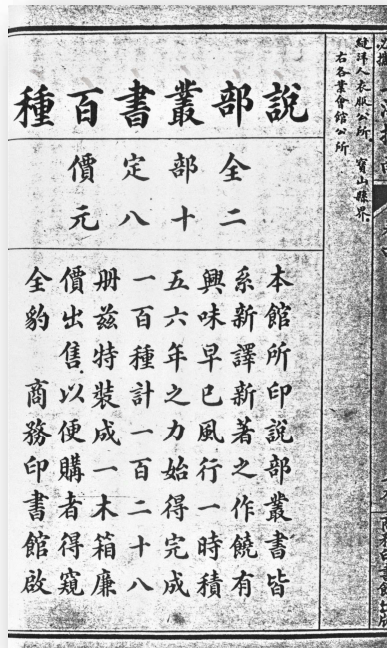 縫洋人衣服公所。寶山縣界。
右各業會館公所
說部叢書百種
全部定價
二十八元
本館所印說部叢書皆
系新譯新著之作饒有
興味早已風行一時積
五六年之力始得完成
一百種計一百二十八
册茲特裝成一木箱廉
價出售以便購者得窺
全豹 商務印書館啟